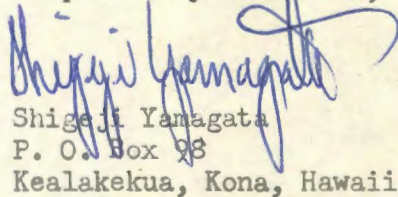 Shigeji Yamagata
Shigeji Yamagata
P. O. Box 98
Kealakekua, Kona, Hawaii